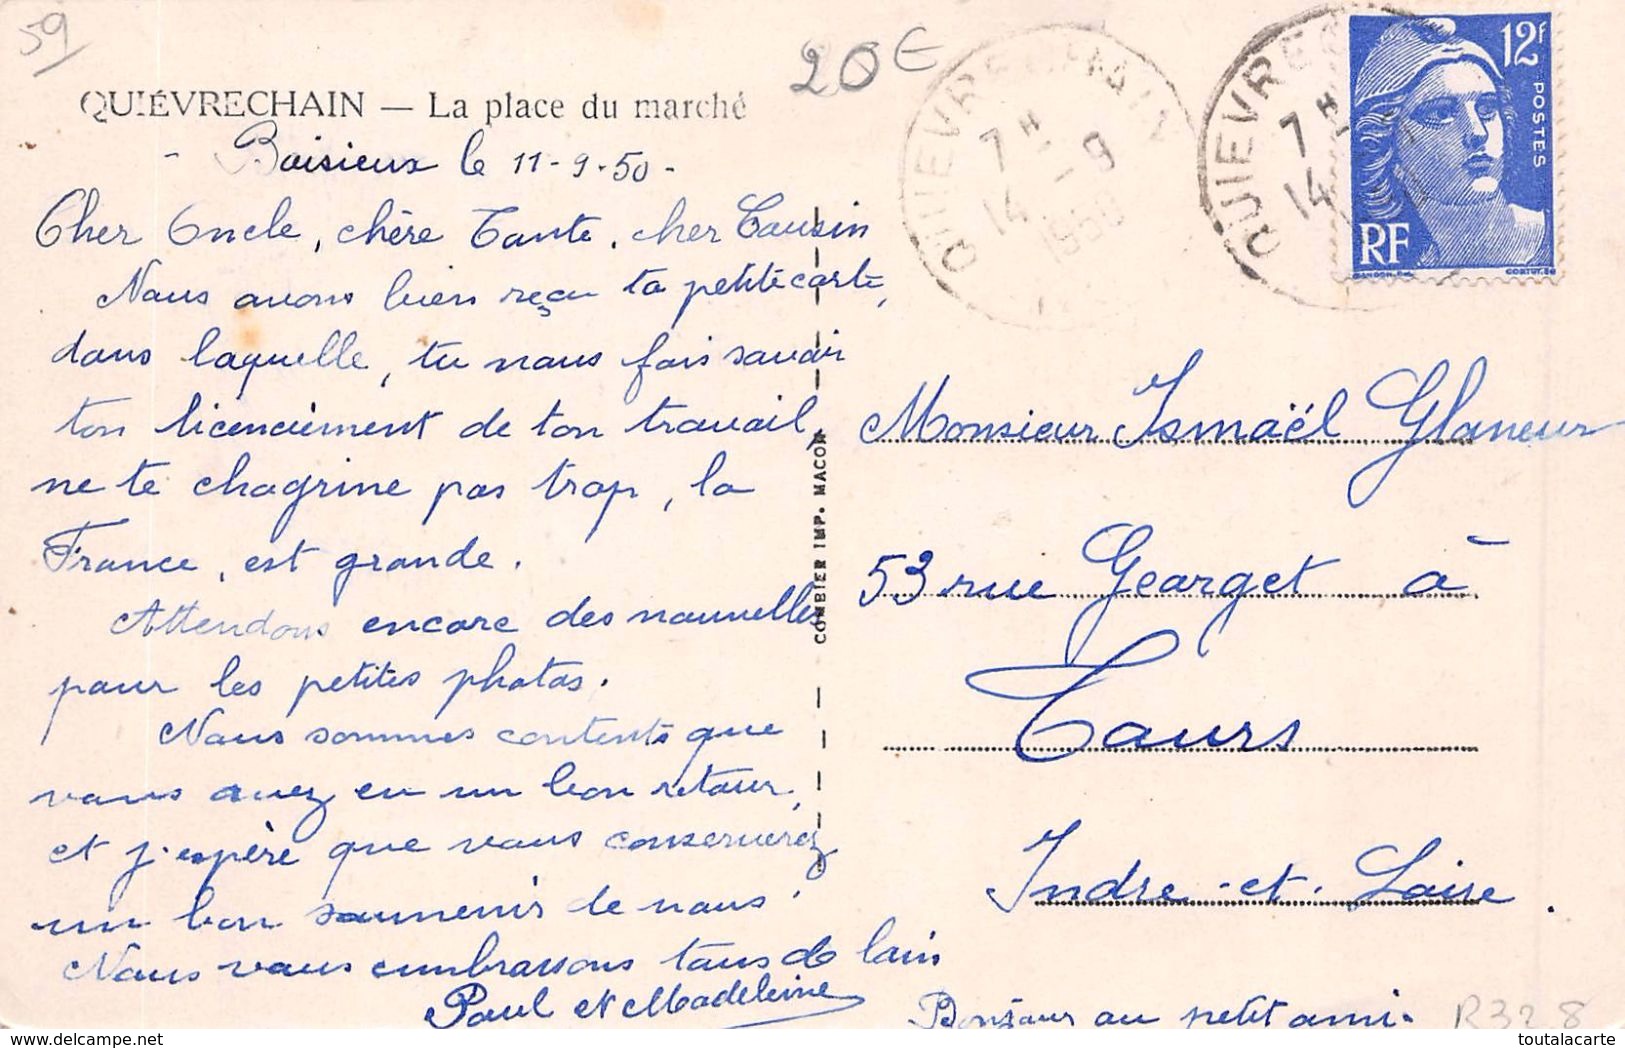 59
20€
QUIÉVRECHAIN — La place du marché
- Baisieux le 11-9-50-
Cher Oncle, chère Tante, cher Cousin
Nous avons bien reçu ta petite carte,
dans laquelle, tu nous fais savoir
ton licenciement de ton travail,
ne te chagrine pas trop, la
France, est grande.
Attendons encore des nouvelles
pour les petites photos.
Nous sommes contents que
vous avez eu un bon retour,
et j'espère que vous conserverez
un bon souvenir de nous.
Nous vous embrassons tous de loin
Paul et Madeleine
COMBIER IMP. MACON
QUIEVRECHAIN
7H
14 - 9
1950
QUIEVRE
7H
14
12F
POSTES
RF
GANDON
CORTOT.SC
Monsieur Ismaël Glaneur
53 rue Georget à
Tours
Indre-et-Loire.
Bonjour au petit ami.
R32 8
My-website-name.com
toutalacarte